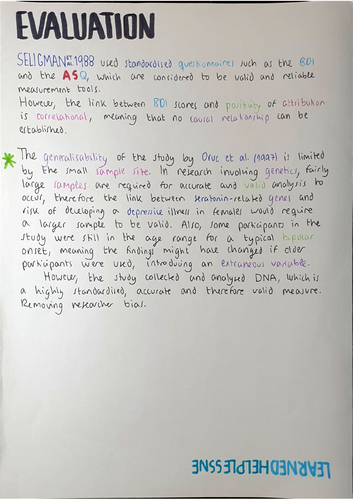 EVALUATION
SELIGMAN et al 1988 used standardised questionnaires such as the BDI
and the ASQ, which are considered to be valid and reliable
measurement tools.
However, the link between BDI scores and positivity of attribution
is correlational, meaning that no causal relationship can be
established.
* The generalisability of the study by Oruc et al. (1997) is limited
by the small sample size. In research involving genetics, fairly
large samples are required for accurate and valid analysis to
occur, therefore the link between serotonin-related genes and
risk of developing a depressive illness in females would require
a larger sample to be valid. Also, some participants in the
study were still in the age range for a typical bipolar
onset, meaning the findings might have changed if older
participants were used, introducing an extraneous variable.
However, the study collected and analysed DNA, which is
a highly standardised, accurate and therefore valid measure.
Removing researcher bias.
LEARNED HELPLESSNE